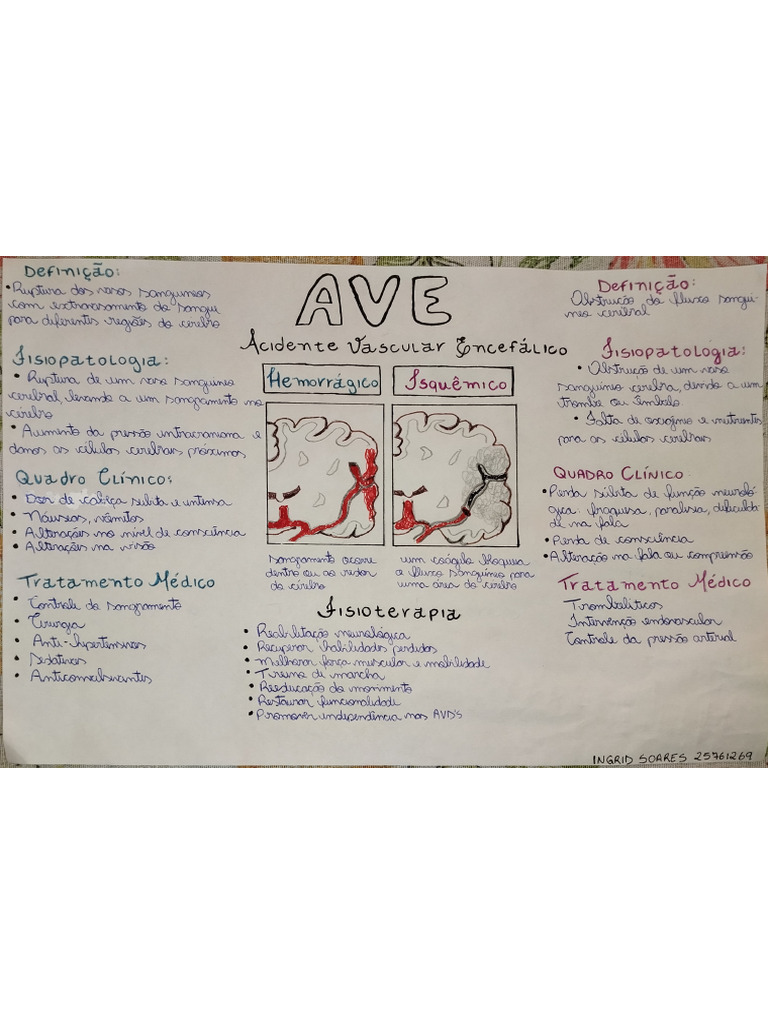 AVE
Acidente Vascular Encefálico
Hemorrágico
Definição:
• Ruptura dos vasos sanguíneos
com extravasamento do sangue
para diferentes regiões do cérebro
Fisiopatologia:
• Ruptura de um vaso sanguíneo
cerebral, levando a um sangamento no
cérebro
• Aumento da pressão intracraniana e
danos as células cerebrais próximos
Quadro Clínico:
• Dor de cabeça súbita e intensa
• Náuseas, vômitos
• Alterações no nível de consciência
• Alterações na visão
Tratamento Médico
• Controle do sangramento
• Cirurgia
• Anti-hipertensivos
• Sedativos
• Anticonvulsivantes
sangramento ocorre
dentro ou ao redor
do cérebro
Isquêmico
Definição:
Obstrução do fluxo sanguí-
neo cerebral
Fisiopatologia:
• Obstrução de um vaso
sanguíneo cerebral, devido a um
trombo ou êmbolo
• Falta de oxigênio e nutrientes
para as células cerebrais
QUADRO CLÍNICO
• Perda súbita de função neuroló-
gica fraqueza, paralisia, dificulda-
de na fala
• Perda de consciência
• Alteração na fala ou compreensão
Tratamento Médico
Trombolíticos
Intervenção endovascular
Controle da pressão arterial
um coágulo bloqueia
o fluxo sanguíneo para
uma área do cérebro
Fisioterapia
• Reabilitação neurológica
• Recuperar habilidades perdidas
• Melhorar força muscular e mobilidade
• Treino de marcha
• Reeducação do movimento
• Restaurar funcionalidade
• Promover independência nas AVD'S
INGRID SOARES 25761269